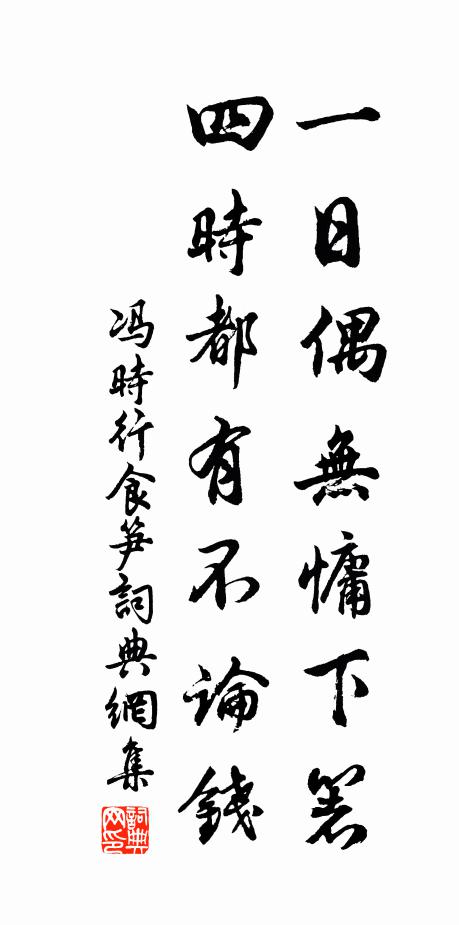 一日偶無慵下箸
四時都有不論錢
冯時行食笋詞典網集
詞典网印